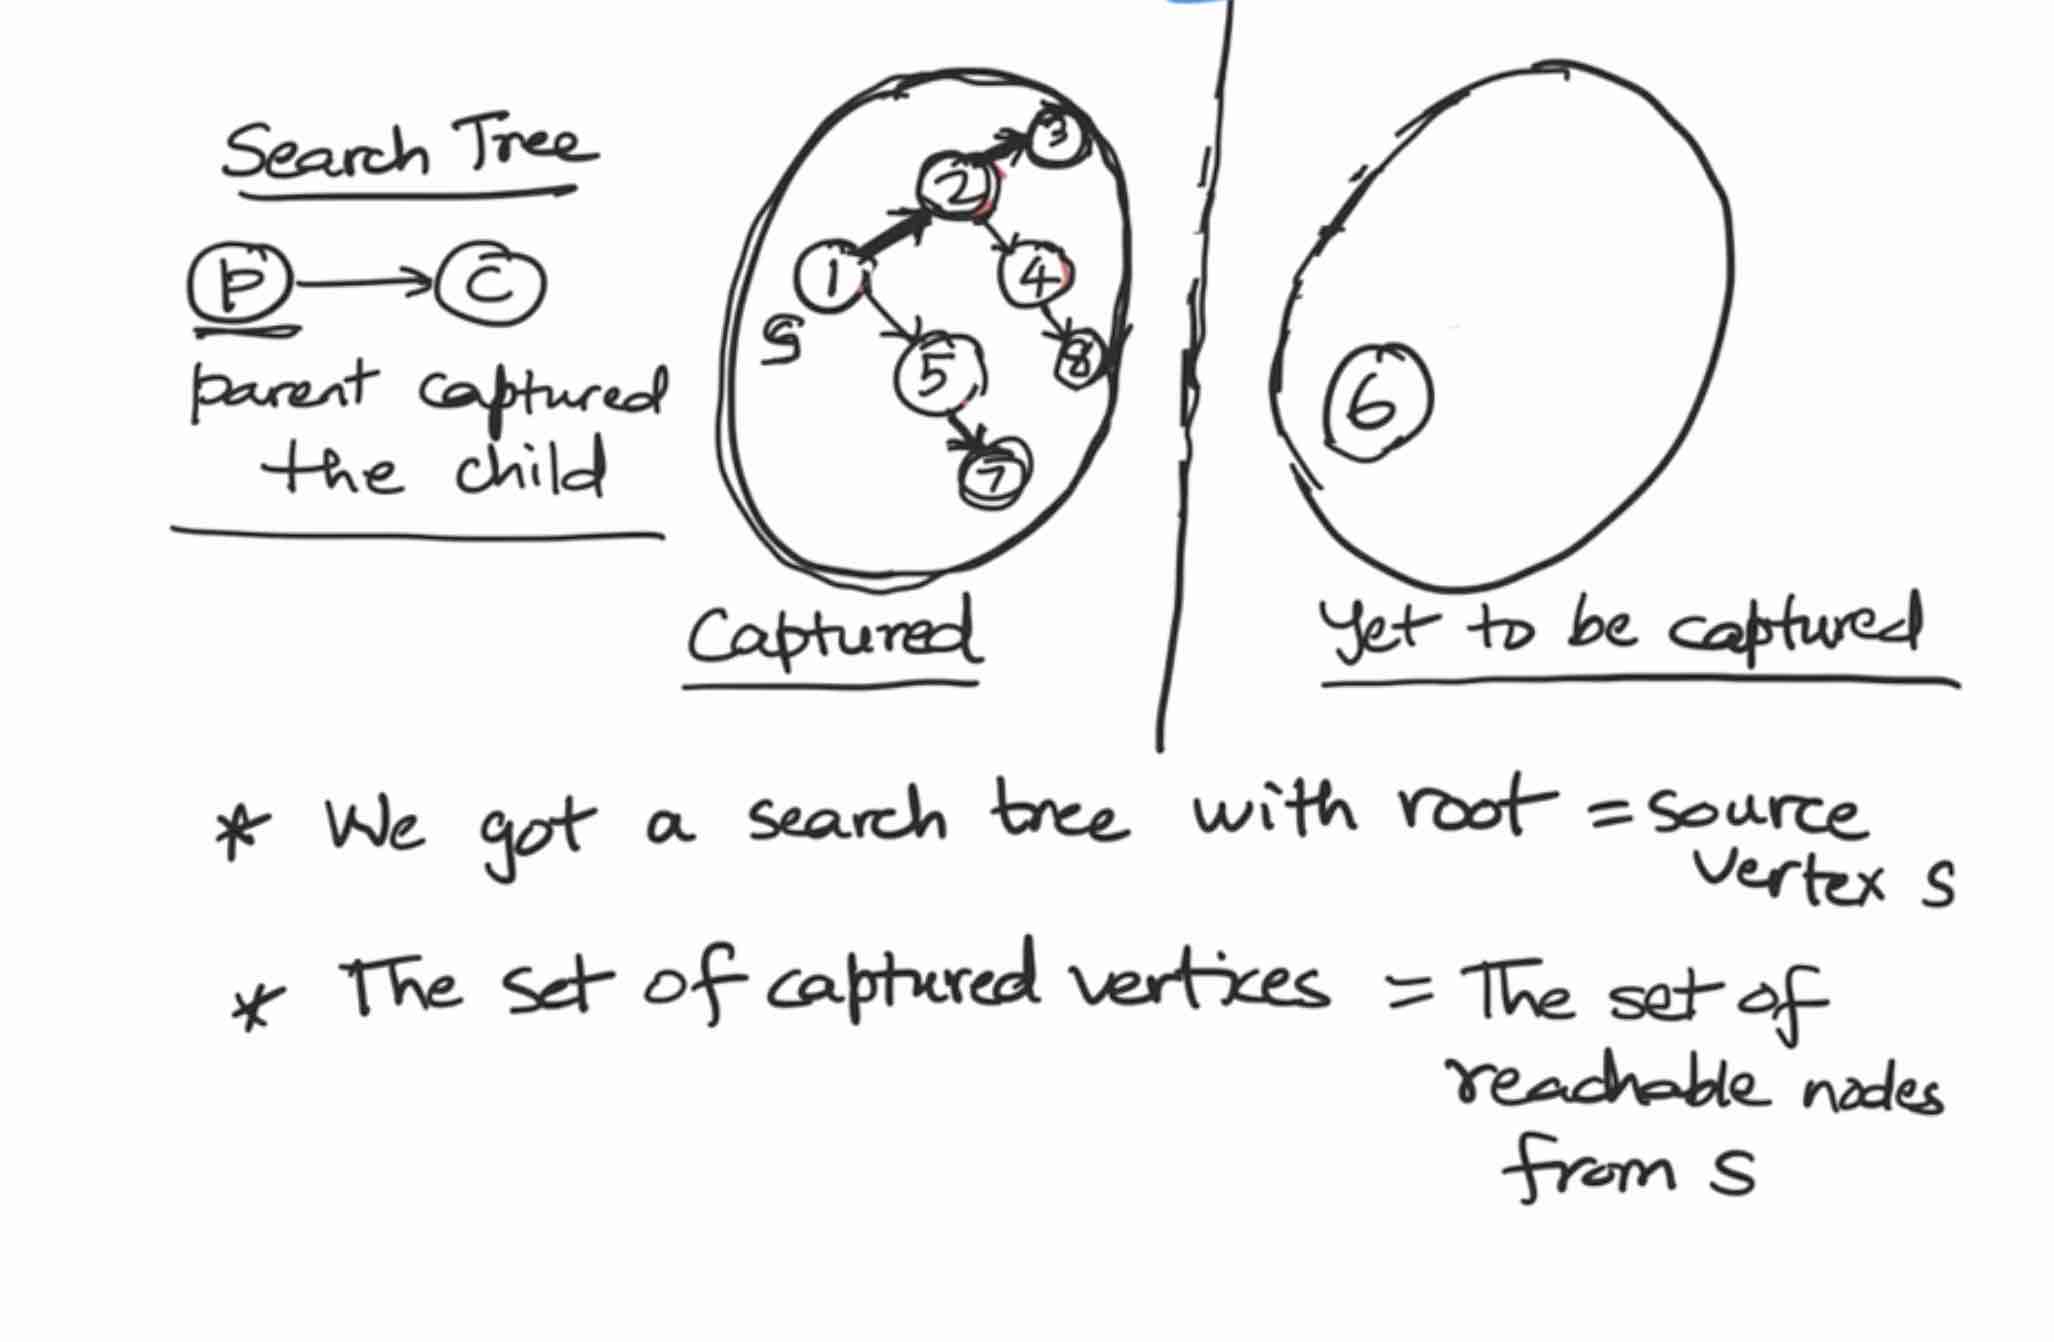 Search Tree
P → C
parent captured
the child
1
2
3
4
5
7
8
S
Captured
6
Yet to be captured
* We got a search tree with root = source
vertex s
* The set of captured vertices = The set of
reachable nodes
from s